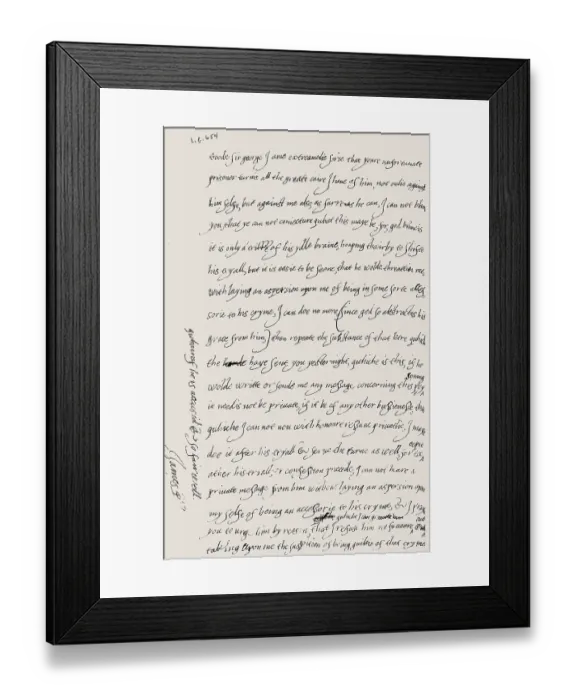 goode Sir george I ame extreamelie sorie that youre unfortunate
prisoner turnes all the greate caire I have of him, not onlie against
him selfe, but against me also, as farre as he can, I can not blame
you, that ye can not conjecture quhat this maye be, for god knowis
it is only a trikke of his ydle braine, hoping thairby to shifte
his tryall, but it is easie to be seine, that he wolde threattin me,
with laying an aspersion upon me of being in some sorte accessorie
to his cryme, I can doe no more (since god so abstractes his
grace from him) then repeate the substance of that lettre quhiche
the have sent you yesternight, quhiche is this, if he
wolde wryte or sende me any message, concerning this poysoning
it needis not be private, if it be of any other bussienesse, that
quhiche I can not now with honoure ressave privatlie, I maye
doe it after his tryall & serve the turne as well, for excepte
ather his tryall or confession præcede, I can not heare a
private message from him without laying an aspersion upon
my selfe of being an accessorie to his cryme, & I praye
you to urge him by reason, that I refuse him no favoure quhiche I can graunte him
taking upon me the suspicion of being guiltie of that cryme
quhairof he is accused & so fairwell
James R